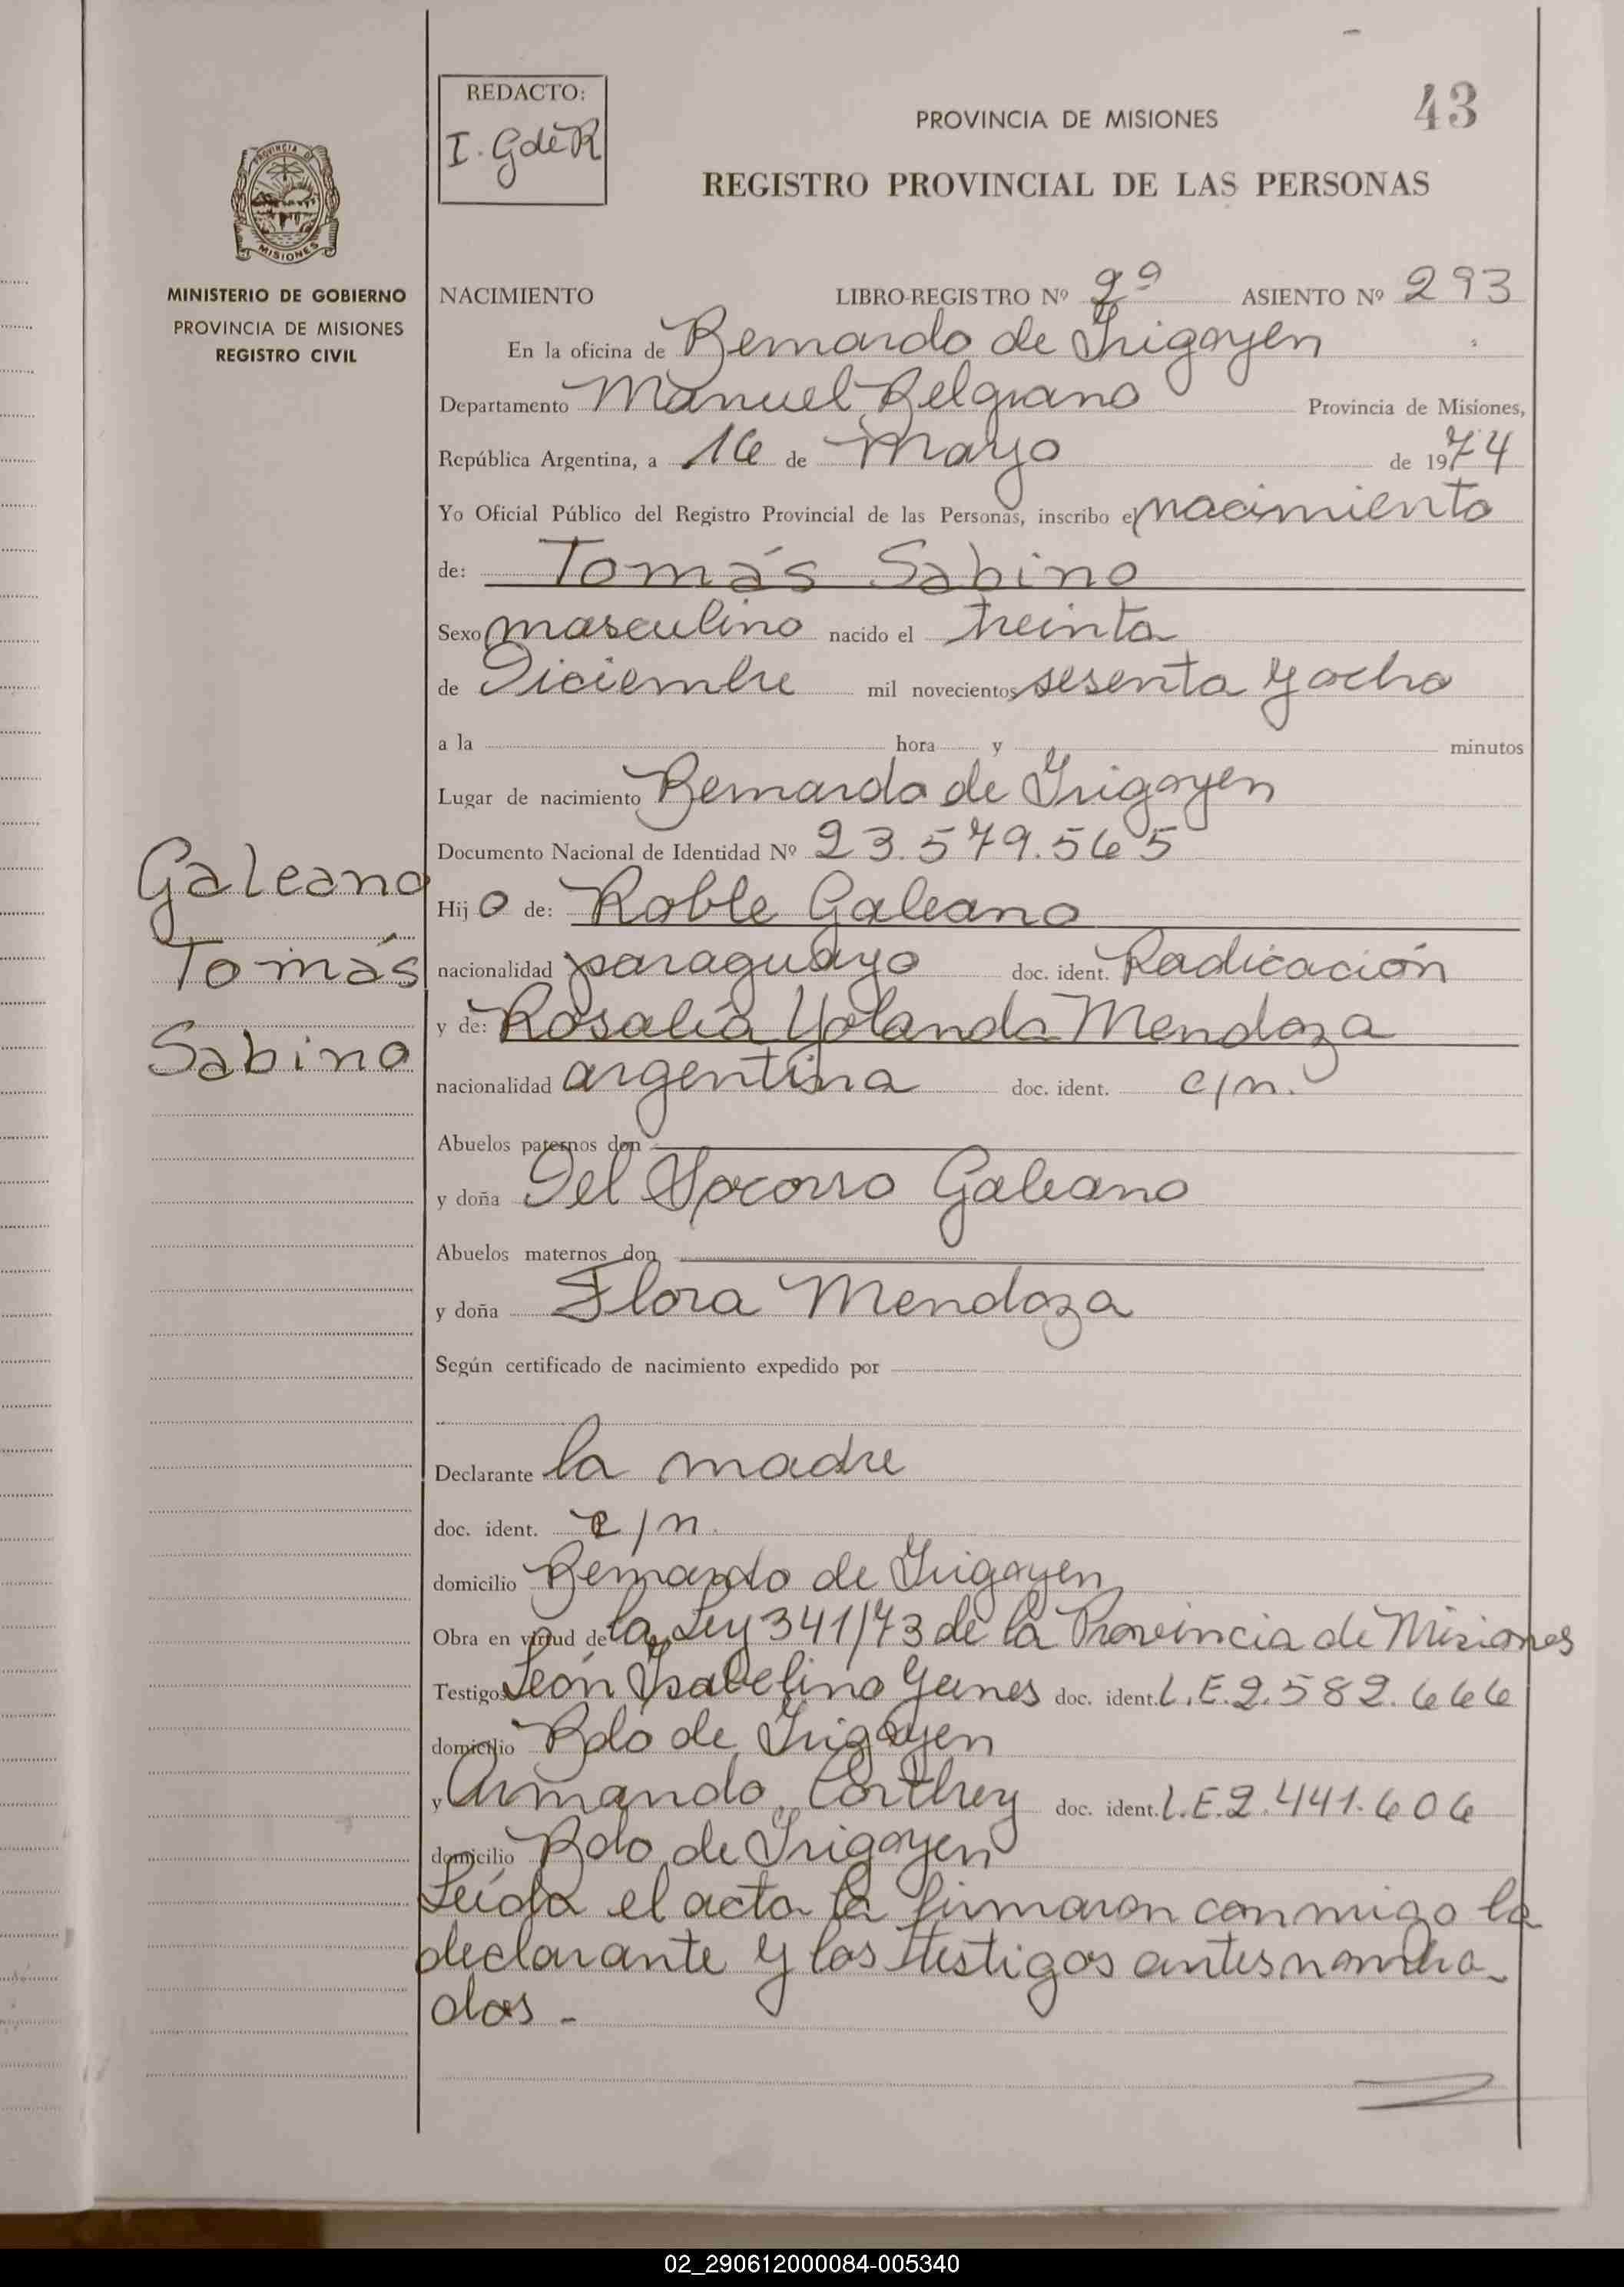 REDACTO:
I. GdeR
PROVINCIA DE MISIONES
43
REGISTRO PROVINCIAL DE LAS PERSONAS
PROVINCIA DE
MISIONES
MINISTERIO DE GOBIERNO
PROVINCIA DE MISIONES
REGISTRO CIVIL
NACIMIENTO LIBRO-REGISTRO Nº 2º ASIENTO Nº 293
En la oficina de Bernardo de Irigoyen
Departamento Manuel Belgrano Provincia de Misiones,
República Argentina, a 16 de Mayo de 1974
Yo Oficial Público del Registro Provincial de las Personas, inscribo el nacimiento
de: Tomás Sabino
Sexo masculino nacido el treinta
de Diciembre mil novecientos sesenta y ocho
a la hora y minutos
Lugar de nacimiento Bernardo de Irigoyen
Documento Nacional de Identidad Nº 23.579.565
Galeano
Tomás
Sabino
Hijo de: Roble Galeano
nacionalidad paraguayo doc. ident. Radicación
y de: Rosalía Yolanda Mendoza
nacionalidad argentina doc. ident. c/n.
Abuelos paternos don
y doña Del Socorro Galeano
Abuelos maternos don
y doña Flora Mendoza
Según certificado de nacimiento expedido por
Declarante la madre
doc. ident. c/n.
domicilio Bernardo de Irigoyen
Obra en virtud de la Ley 341/73 de la Provincia de Misiones
Testigos León Ysabelino Yanes doc. ident. L.E.2.582.666
domicilio Bdo de Irigoyen
y Armando Corthey doc. ident. L.E.2.441.606
domicilio Bdo de Irigoyen
Leída el acta la firmaron conmigo la
declarante y los testigos antes nombra-
dos.-
02_290612000084-005340